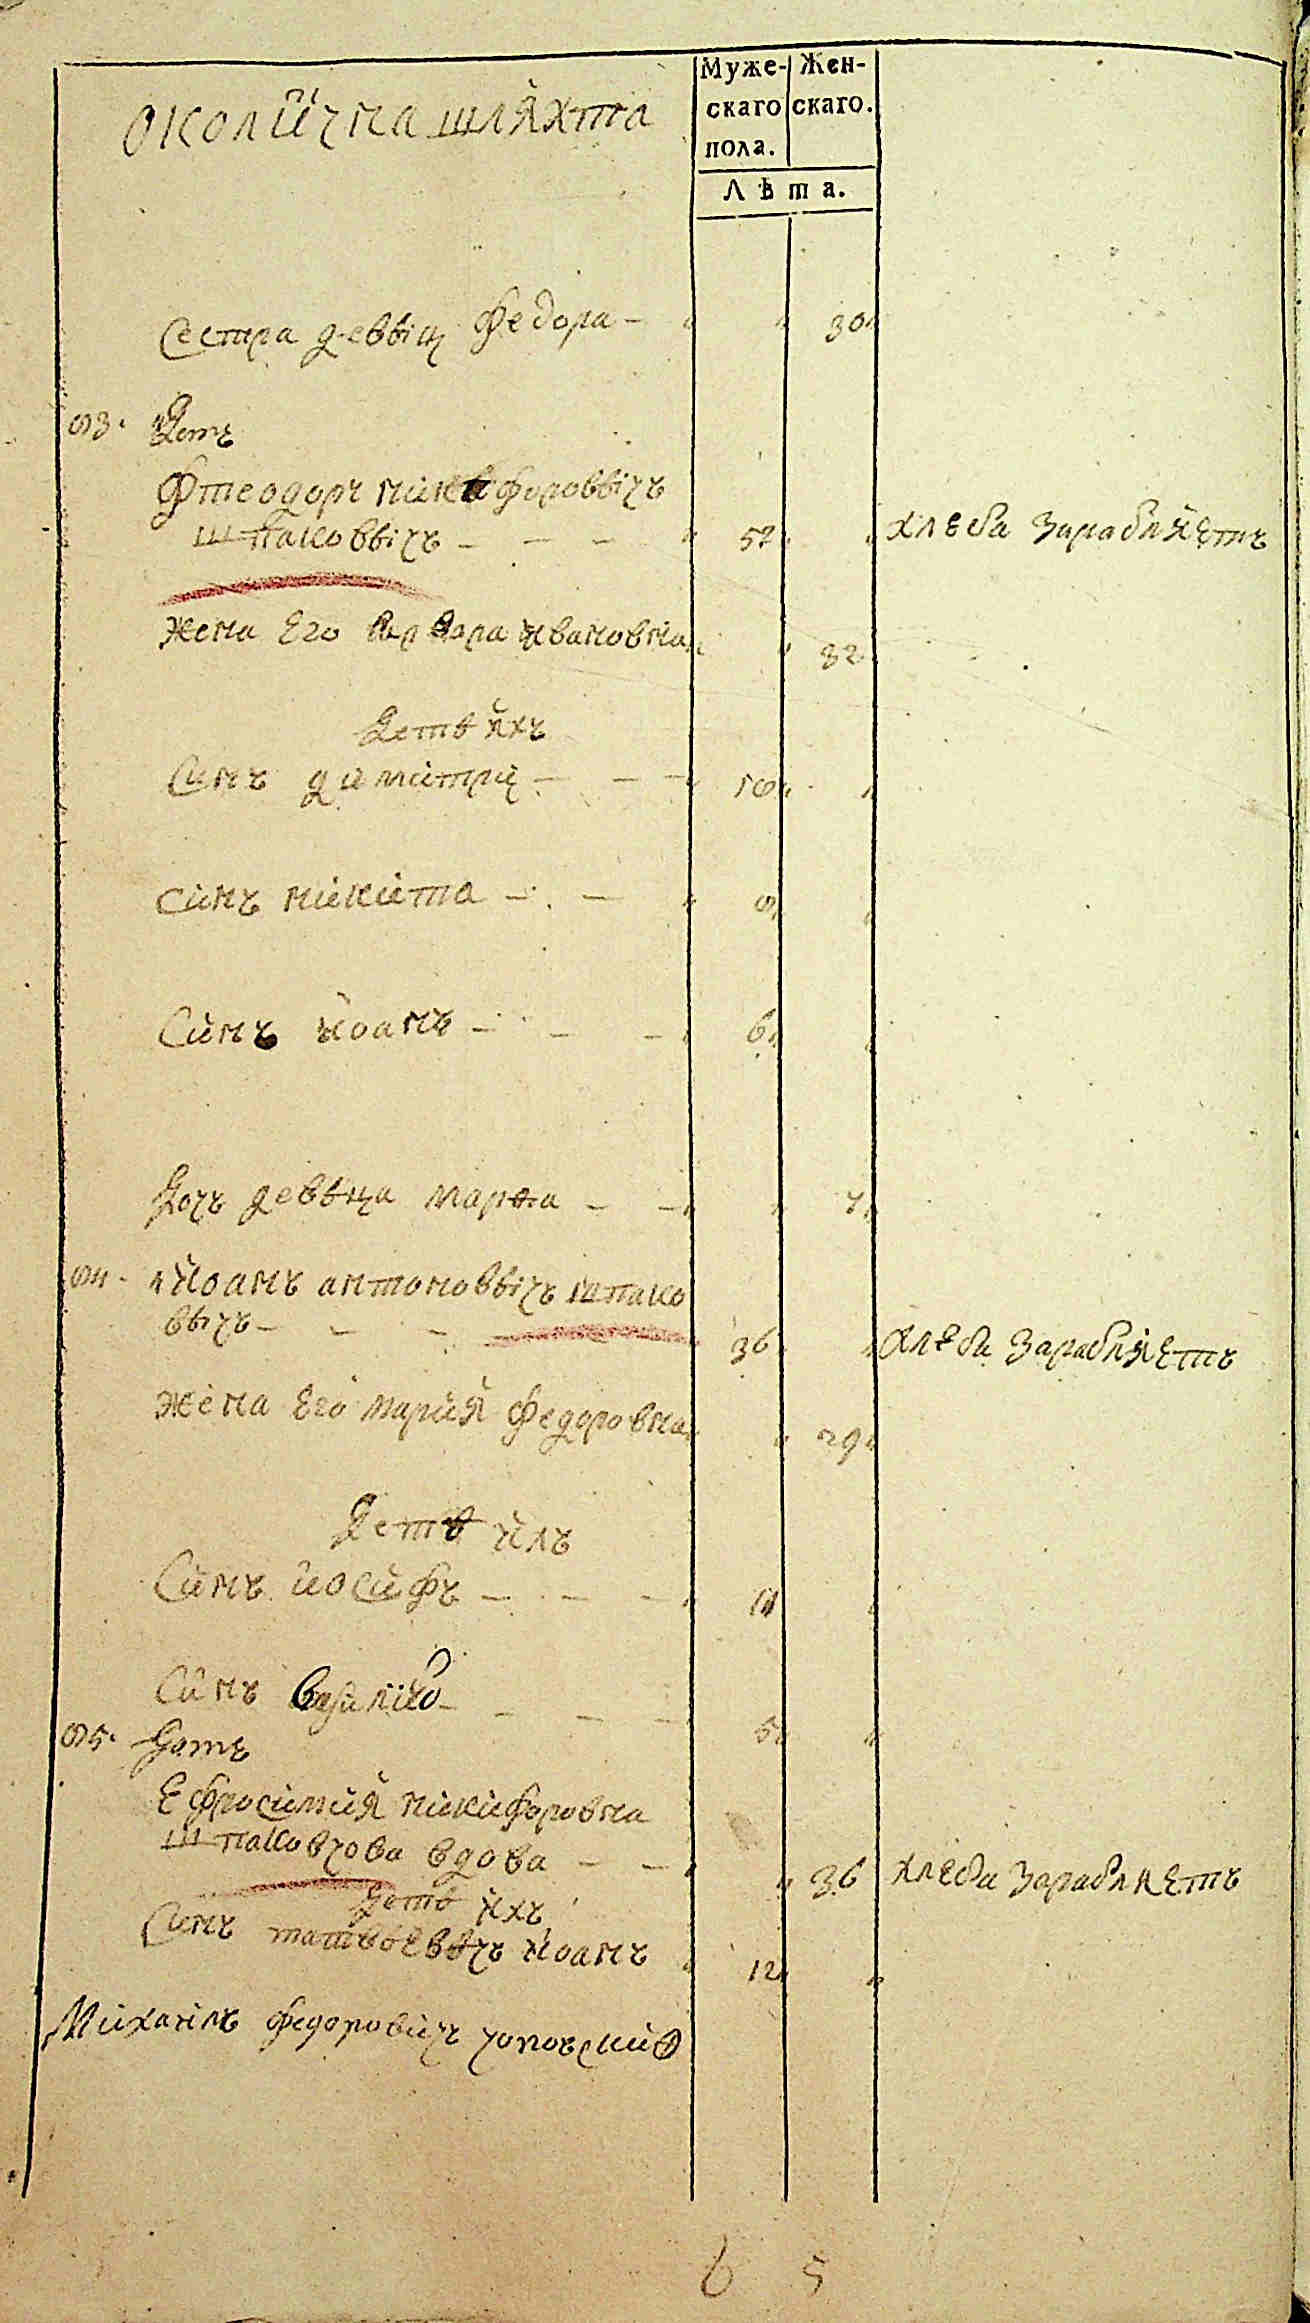 околична шляхта
Муже-
скаго
пола.
Жен-
скаго.
Лѣта.
Сестра деввіц Федора - 30
93. Домъ
Фтеодоръ Никифороввічъ
Шпаковвічъ - - - 52 хлеба зарабляетъ
Жена Его Варвара ивановна 32
Дети ихъ
Синъ димитрий - - - 10
Синъ никита - - 9
Синъ иоанъ - - - 6
Дочъ девѣца марѳа - - 7
94. иоанъ антоноввічъ шпако
ввічъ - - - 36 хлеба зарабляетъ
Жена Его мария федоровна 29
Дети ихъ
Синъ иосифъ - - - 11
Синъ - - - 5
95. Домъ
Ефросиния никифоровна
шпаковчова вдова - - 36 хлеба зарабляетъ
Дети ихъ
Синъ матвѣевѣчъ иоанъ 12
Михаилъ федоровичъ
6 5